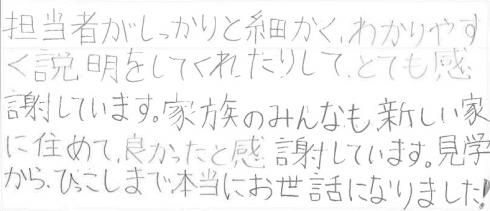 担当者がしっかりと細かく、わかりやす
く説明をしてくれたりして、とても感
謝しています。家族のみんなも新しい家
に住めて、良かったと感謝しています。見学
から、ひっこしまで本当にお世話になりました!